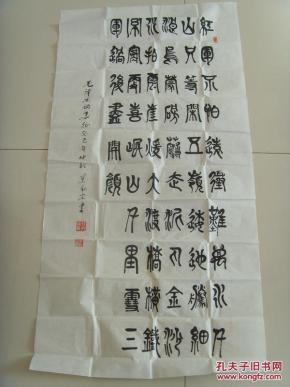 紅軍不怕遠征難萬水千
山只等閒五嶺逶迤騰細
浪烏蒙磅礴走泥丸金沙
水拍雲崖暖大渡橋橫鐵
索寒更喜岷山千里雪三
軍過後盡開顏
毛澤東詞長征癸巳年
書
孔夫子旧书网